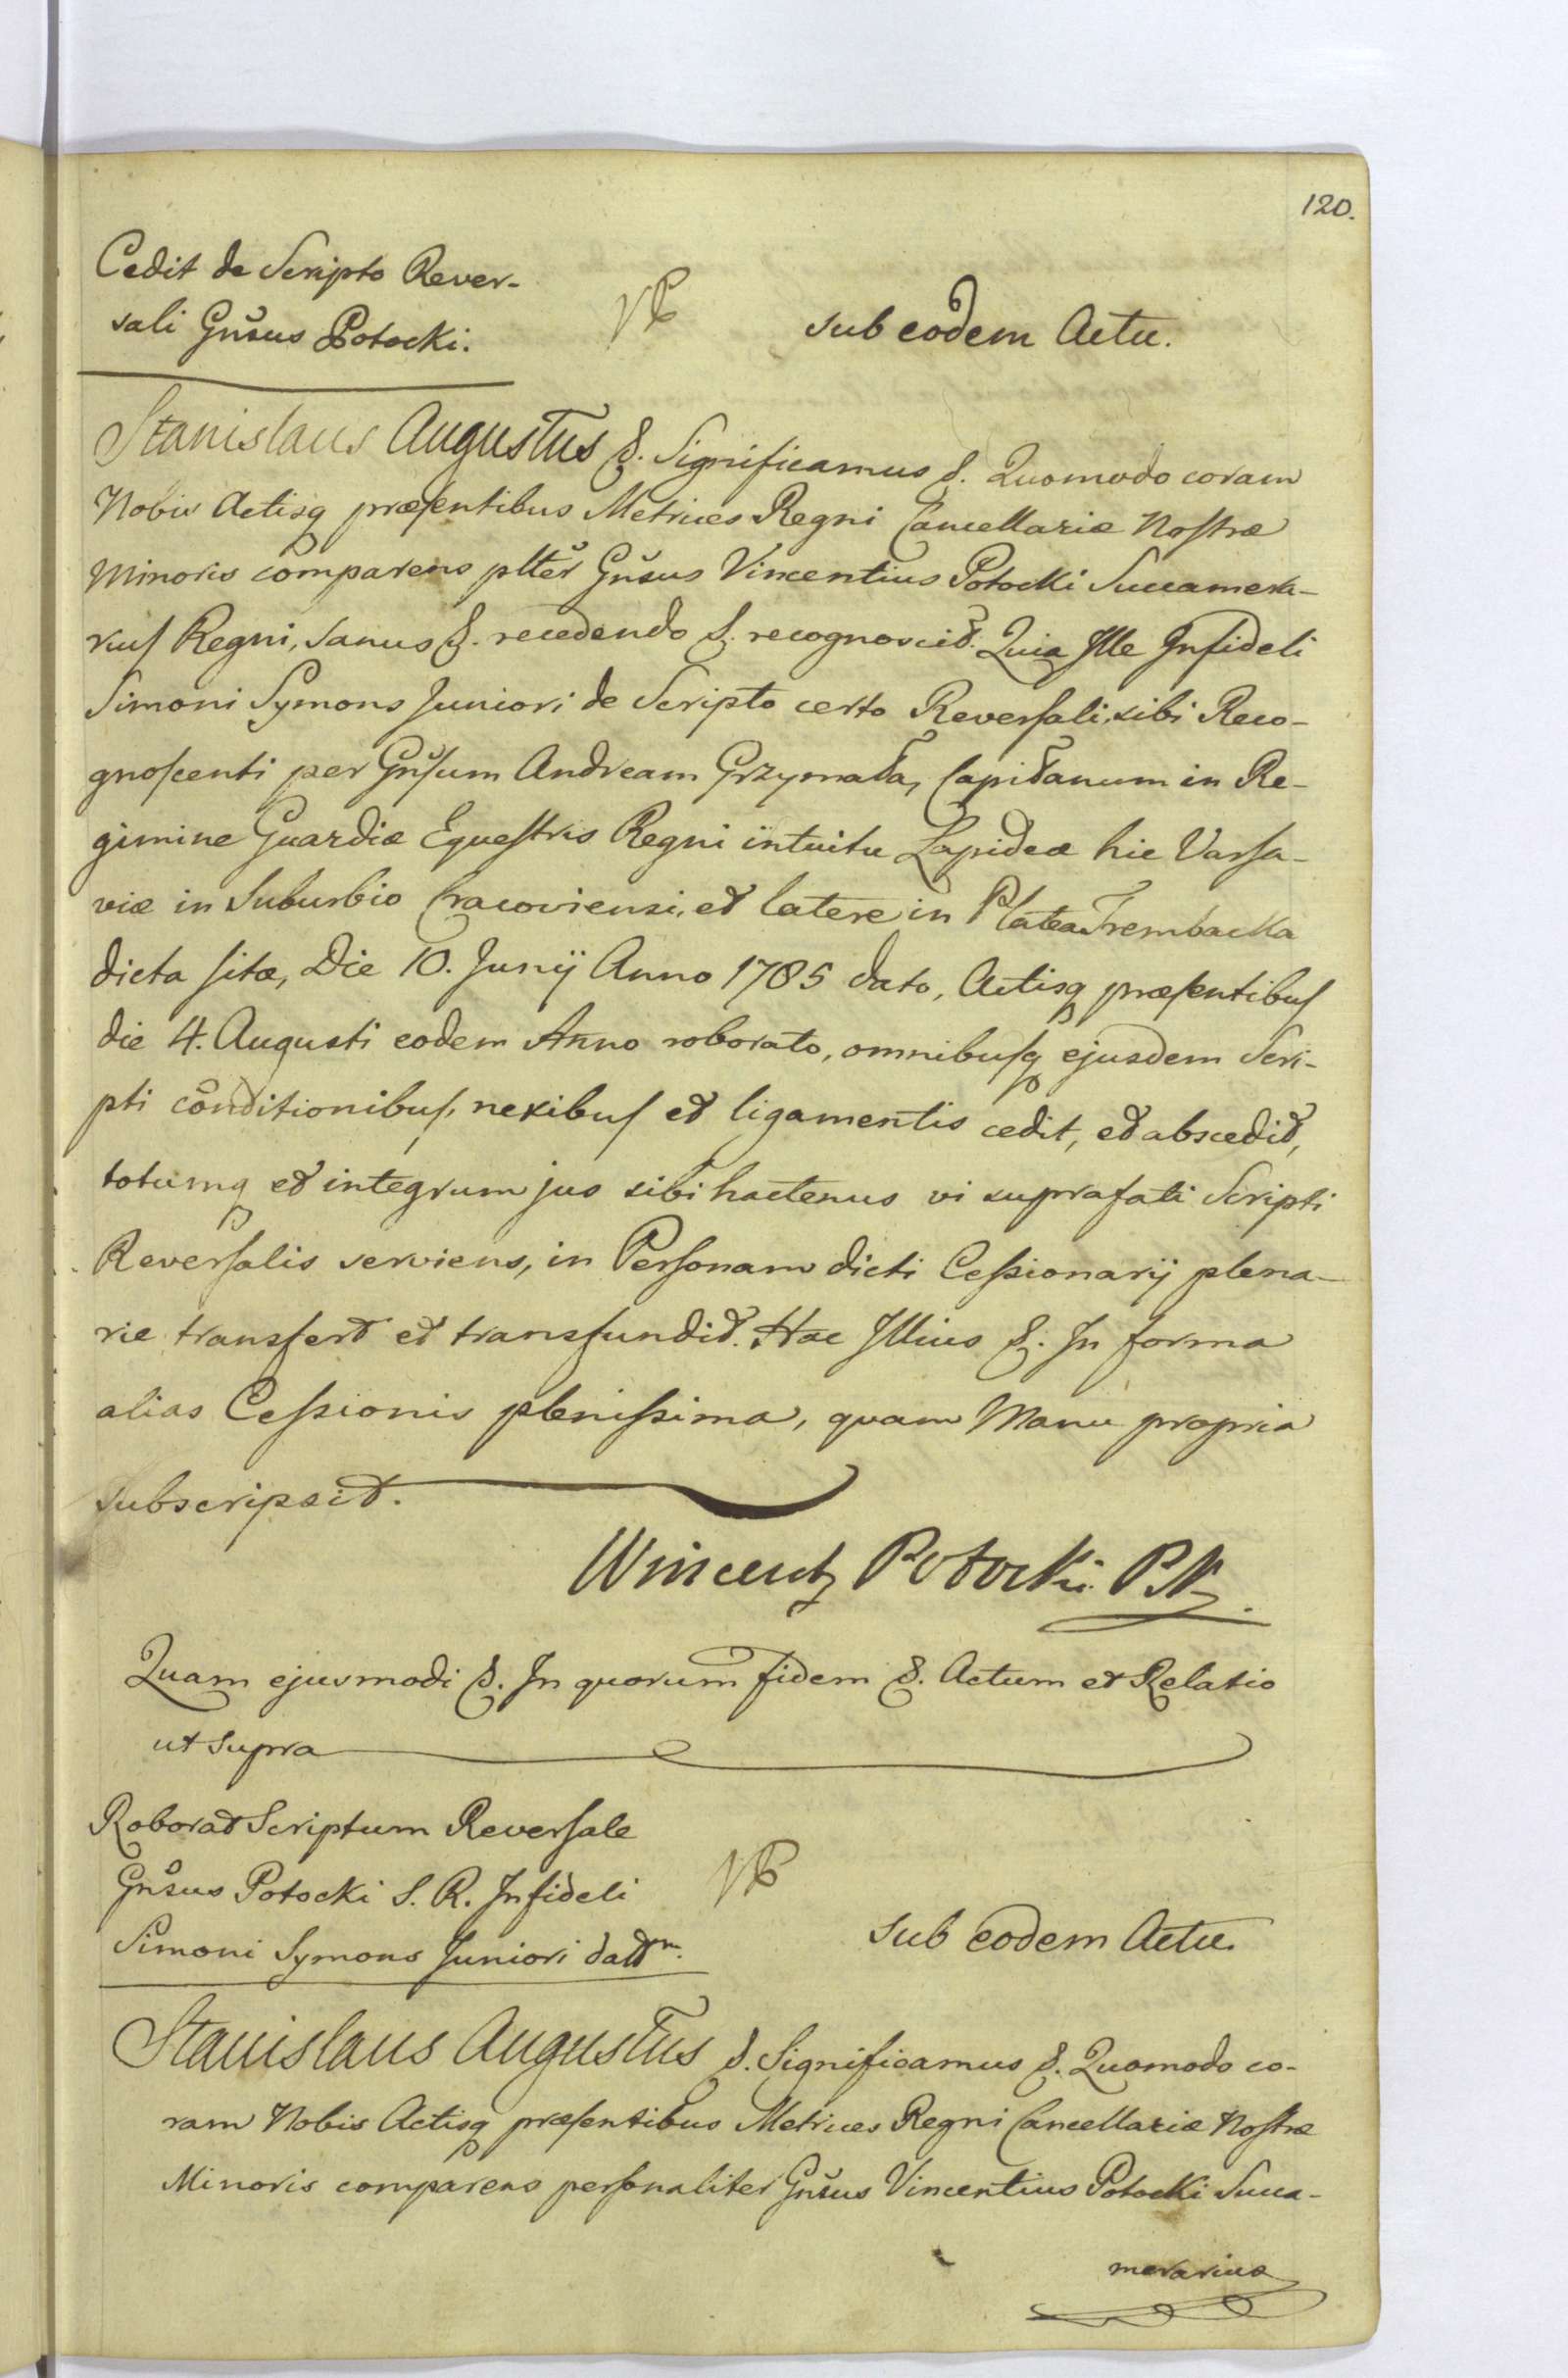 120.
Cedit de Scripto Rever-
sali Gnsus Potocki.
sub eodem Actu.
Stanislaus Augustus &. Significamus &. Quomodo coram
Nobis Actisq præsentibus Metrices Regni Cancellariæ Nostræ
Minoris comparens plter Gnsus Vincentius Potocki Succamera-
rius Regni, sanus &. recedendo &. recognoscit. Quia Ille Infideli
Simoni Symons Juniori de Scripto certo Reversali, sibi Reco-
gnoscenti per Gnsum Andream Grzymała, Capitanum in Re-
gimine Guardiæ Equestris Regni intuitu Lapideæ hic Varsa-
viæ in Suburbio Cracoviensi, et latere in Platea Trembacka
dicta sitæ, Die 10. Junij Anno 1785 dato, Actisq præsentibus
die 4. Augusti eodem Anno roborato, omnibusq ejusdem Scri-
pti conditionibus, nexibus et ligamentis cedit, et abscedit,
totumq et integrum jus sibi hactenus vi suprafati Scripti
Reversalis serviens, in Personam dicti Cessionarij plena-
rie transfert et transfundit. Hac Illius &. In forma
alias Cessionis plenissima, quam Manu propria
subscripsit.
Wincenty Potocki PK
Quam ejusmodi &. In quorum fidem &. Actum et Relatio
ut supra
Roborat Scriptum Reversale
Gnsus Potocki S. R. Infideli
Simoni Symons Juniori datm.
sub eodem Actu.
Stanislaus Augustus &. Significamus &. Quomodo co-
ram Nobis Actisq præsentibus Metrices Regni Cancellariæ Nostræ
Minoris comparens personaliter Gnsus Vincentius Potocki Succa-
merarius